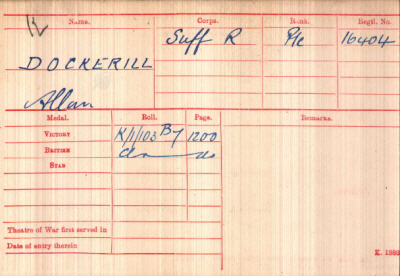 Name. Corps. Rank. Regtl. No.
Suff R Pte 16404
DOCKERILL
Allan
Medal. Roll. Page. Remarks.
VICTORY K/1/103 B7 1200
BRITISH do do
STAR
Theatre of War first served in
Date of entry therein
K. 1380